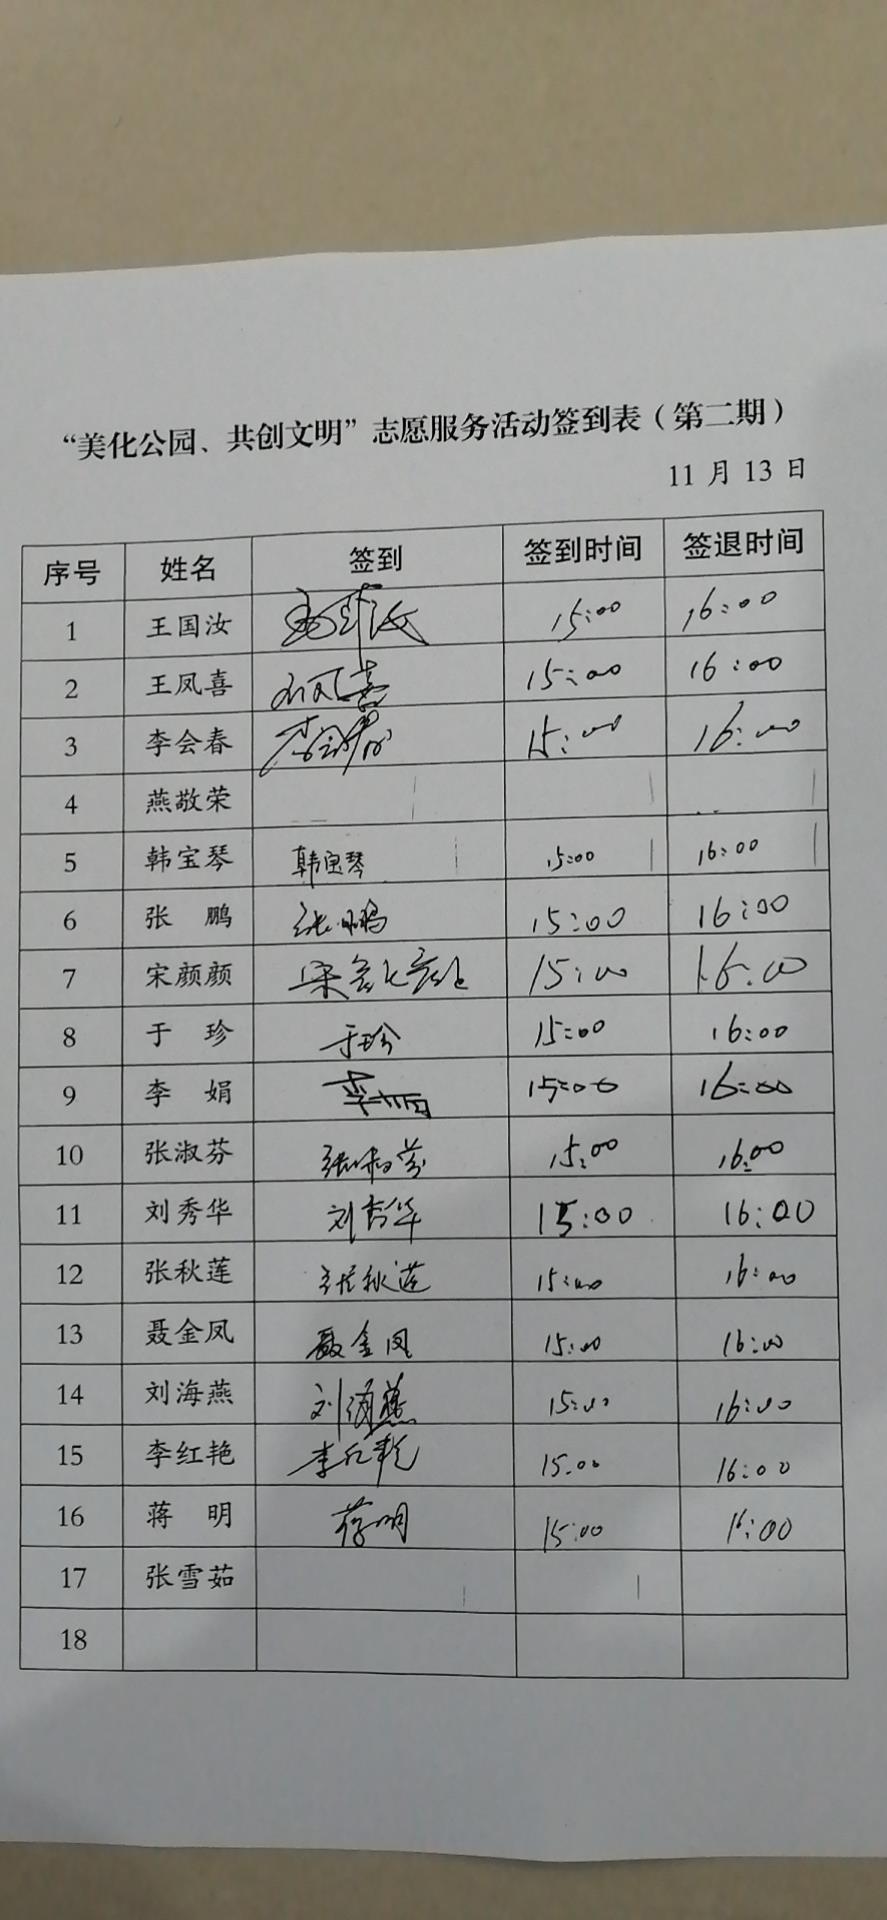 “美化公园、共创文明”志愿服务活动签到表（第二期）
11 月 13 日
序号 姓名 签到 签到时间 签退时间
1 王国汝 15:00 16:00
2 王凤喜 王凤喜 15:00 16:00
3 李会春 李会春 15:00 16:00
4 燕敬荣
5 韩宝琴 韩宝琴 15:00 16:00
6 张 鹏 张鹏 15:00 16:00
7 宋颜颜 宋颜颜 15:00 16:00
8 于 珍 于珍 15:00 16:00
9 李 娟 李娟 15:00 16:00
10 张淑芬 张淑芬 15:00 16:00
11 刘秀华 刘秀华 15:00 16:00
12 张秋莲 张秋莲 15:00 16:00
13 聂金凤 聂金凤 15:00 16:00
14 刘海燕 刘海燕 15:00 16:00
15 李红艳 李红艳 15:00 16:00
16 蒋 明 蒋明 15:00 16:00
17 张雪茹
18